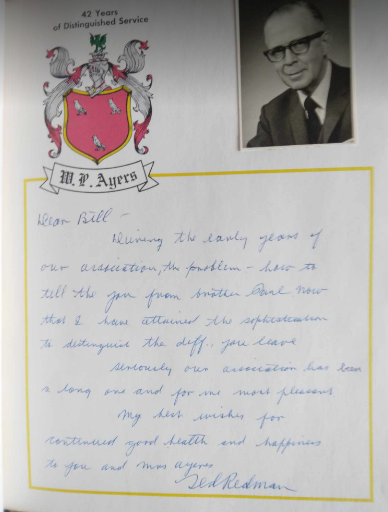 42 Years
of Distinguished Service
W. P. Ayers
Dear Bill –
During the early years of
our association, the problem – how to
tell the you from brother Earl Now
that I have attained the sophistication
to distinguish the diff., you leave
Seriously our association has been
a long one and for me most pleasant
My best wishes for
continued good health and happiness
to you and Mrs Ayeres
Ted Redman